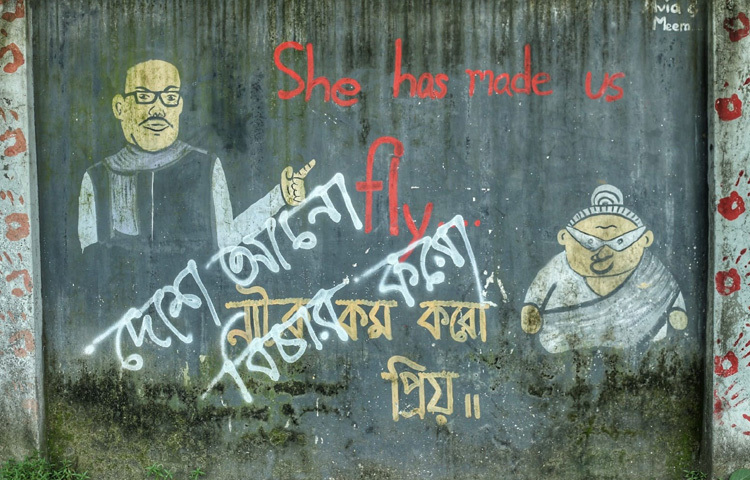 Meem
She has made us
fly...
দেশে আনো
বিচার করো
নাটক কম করো
প্রিয়॥